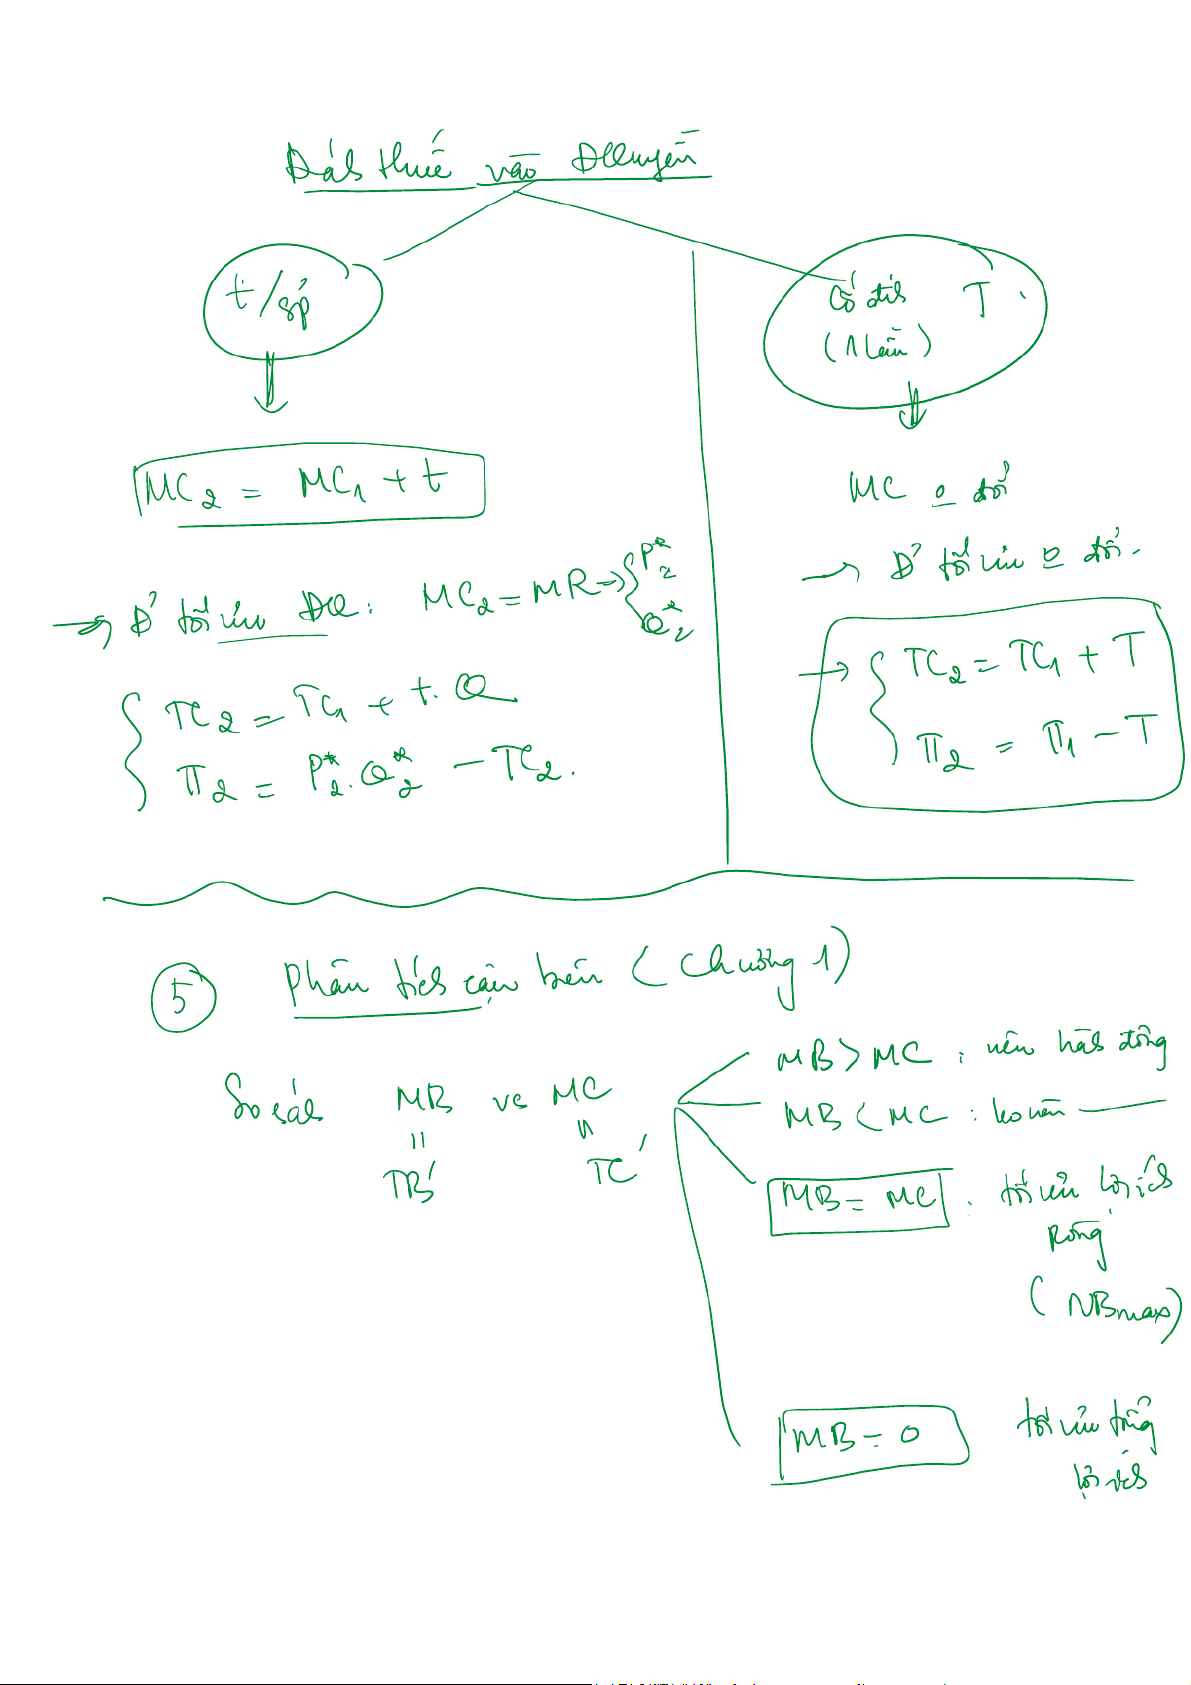 Đánh thuế vào ĐQuyền
t/sp
MC₂ = MC₁ + t
→ Đ' tối ưu ĐQ: MC₂ = MR → { P*₂ Q*₂
{ TC₂ = TC₁ + t.Q
π₂ = P*₂.Q*₂ - TC₂.
Cố định T
(1 lần)
MC o đổi
→ Đ' tối ưu o đổi.
→ { TC₂ = TC₁ + T
π₂ = π₁ - T
5 Phân tích cận biên (Chương 1)
So sánh MB vs MC
TB' TC'
MB > MC : nên hành động
MB < MC : ko nên
MB = MC : tối ưu lợi ích
ròng
(NBmax)
MB = 0 tối ưu tổng
lợi ích